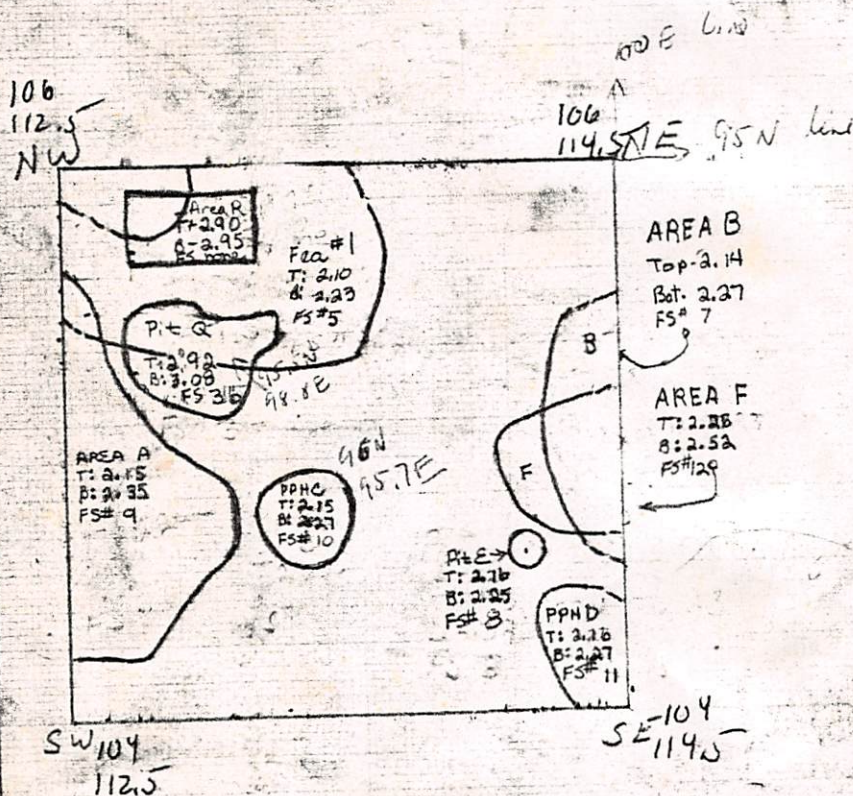 106
112.5
NW
106
114.5 NE
95N line
Area R
T-2.90
B-2.95
FS none
Fea #1
T: 2.10
B: 2.23
FS #5
AREA B
Top-2.14
Bot. 2.27
FS# 7
Pit Q
T: 2.92
B: 3.09
B
98.8E
AREA F
B: 2.52
FS#129
F
AREA A
T: 2.15
B: 2.35
FS# 9
96N
95.7E
T: 2.15
B: 2.27
FS# 10
Pit E
B: 2.25
FS# 8
PPHD
B: 2.27
FS# 11
SW 104
112.5
SE 104
114.5